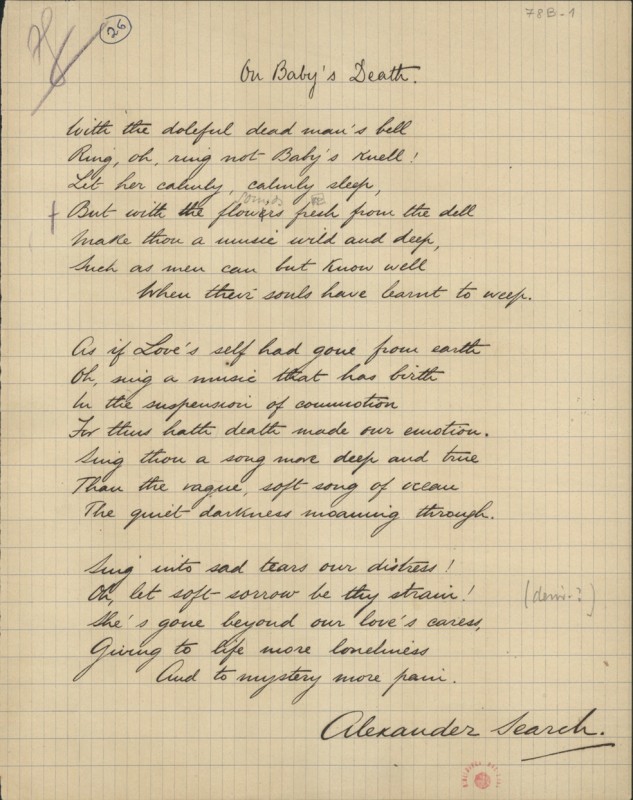 26
78B-1
On Baby's Death.
With the doleful dead man's bell
Ring, oh, ring not Baby's knell!
Let her calmly, calmly sleep,
But with the flowers fresh from the dell
Make thou a music wild and deep,
Such as men can but know well
When their souls have learnt to weep.
As if Love's self had gone from earth
Oh, sing a music that has birth
In the suspension of commotion
For thus hath death made our emotion.
Sing thou a song more deep and true
Than the vague, soft song of ocean
The quiet darkness moaning through.
Sing into sad tears our distress!
Oh, let soft sorrow be thy strain!
She's gone beyond our love's caress,
Giving to life more loneliness
And to mystery more pain.
Alexander Search.